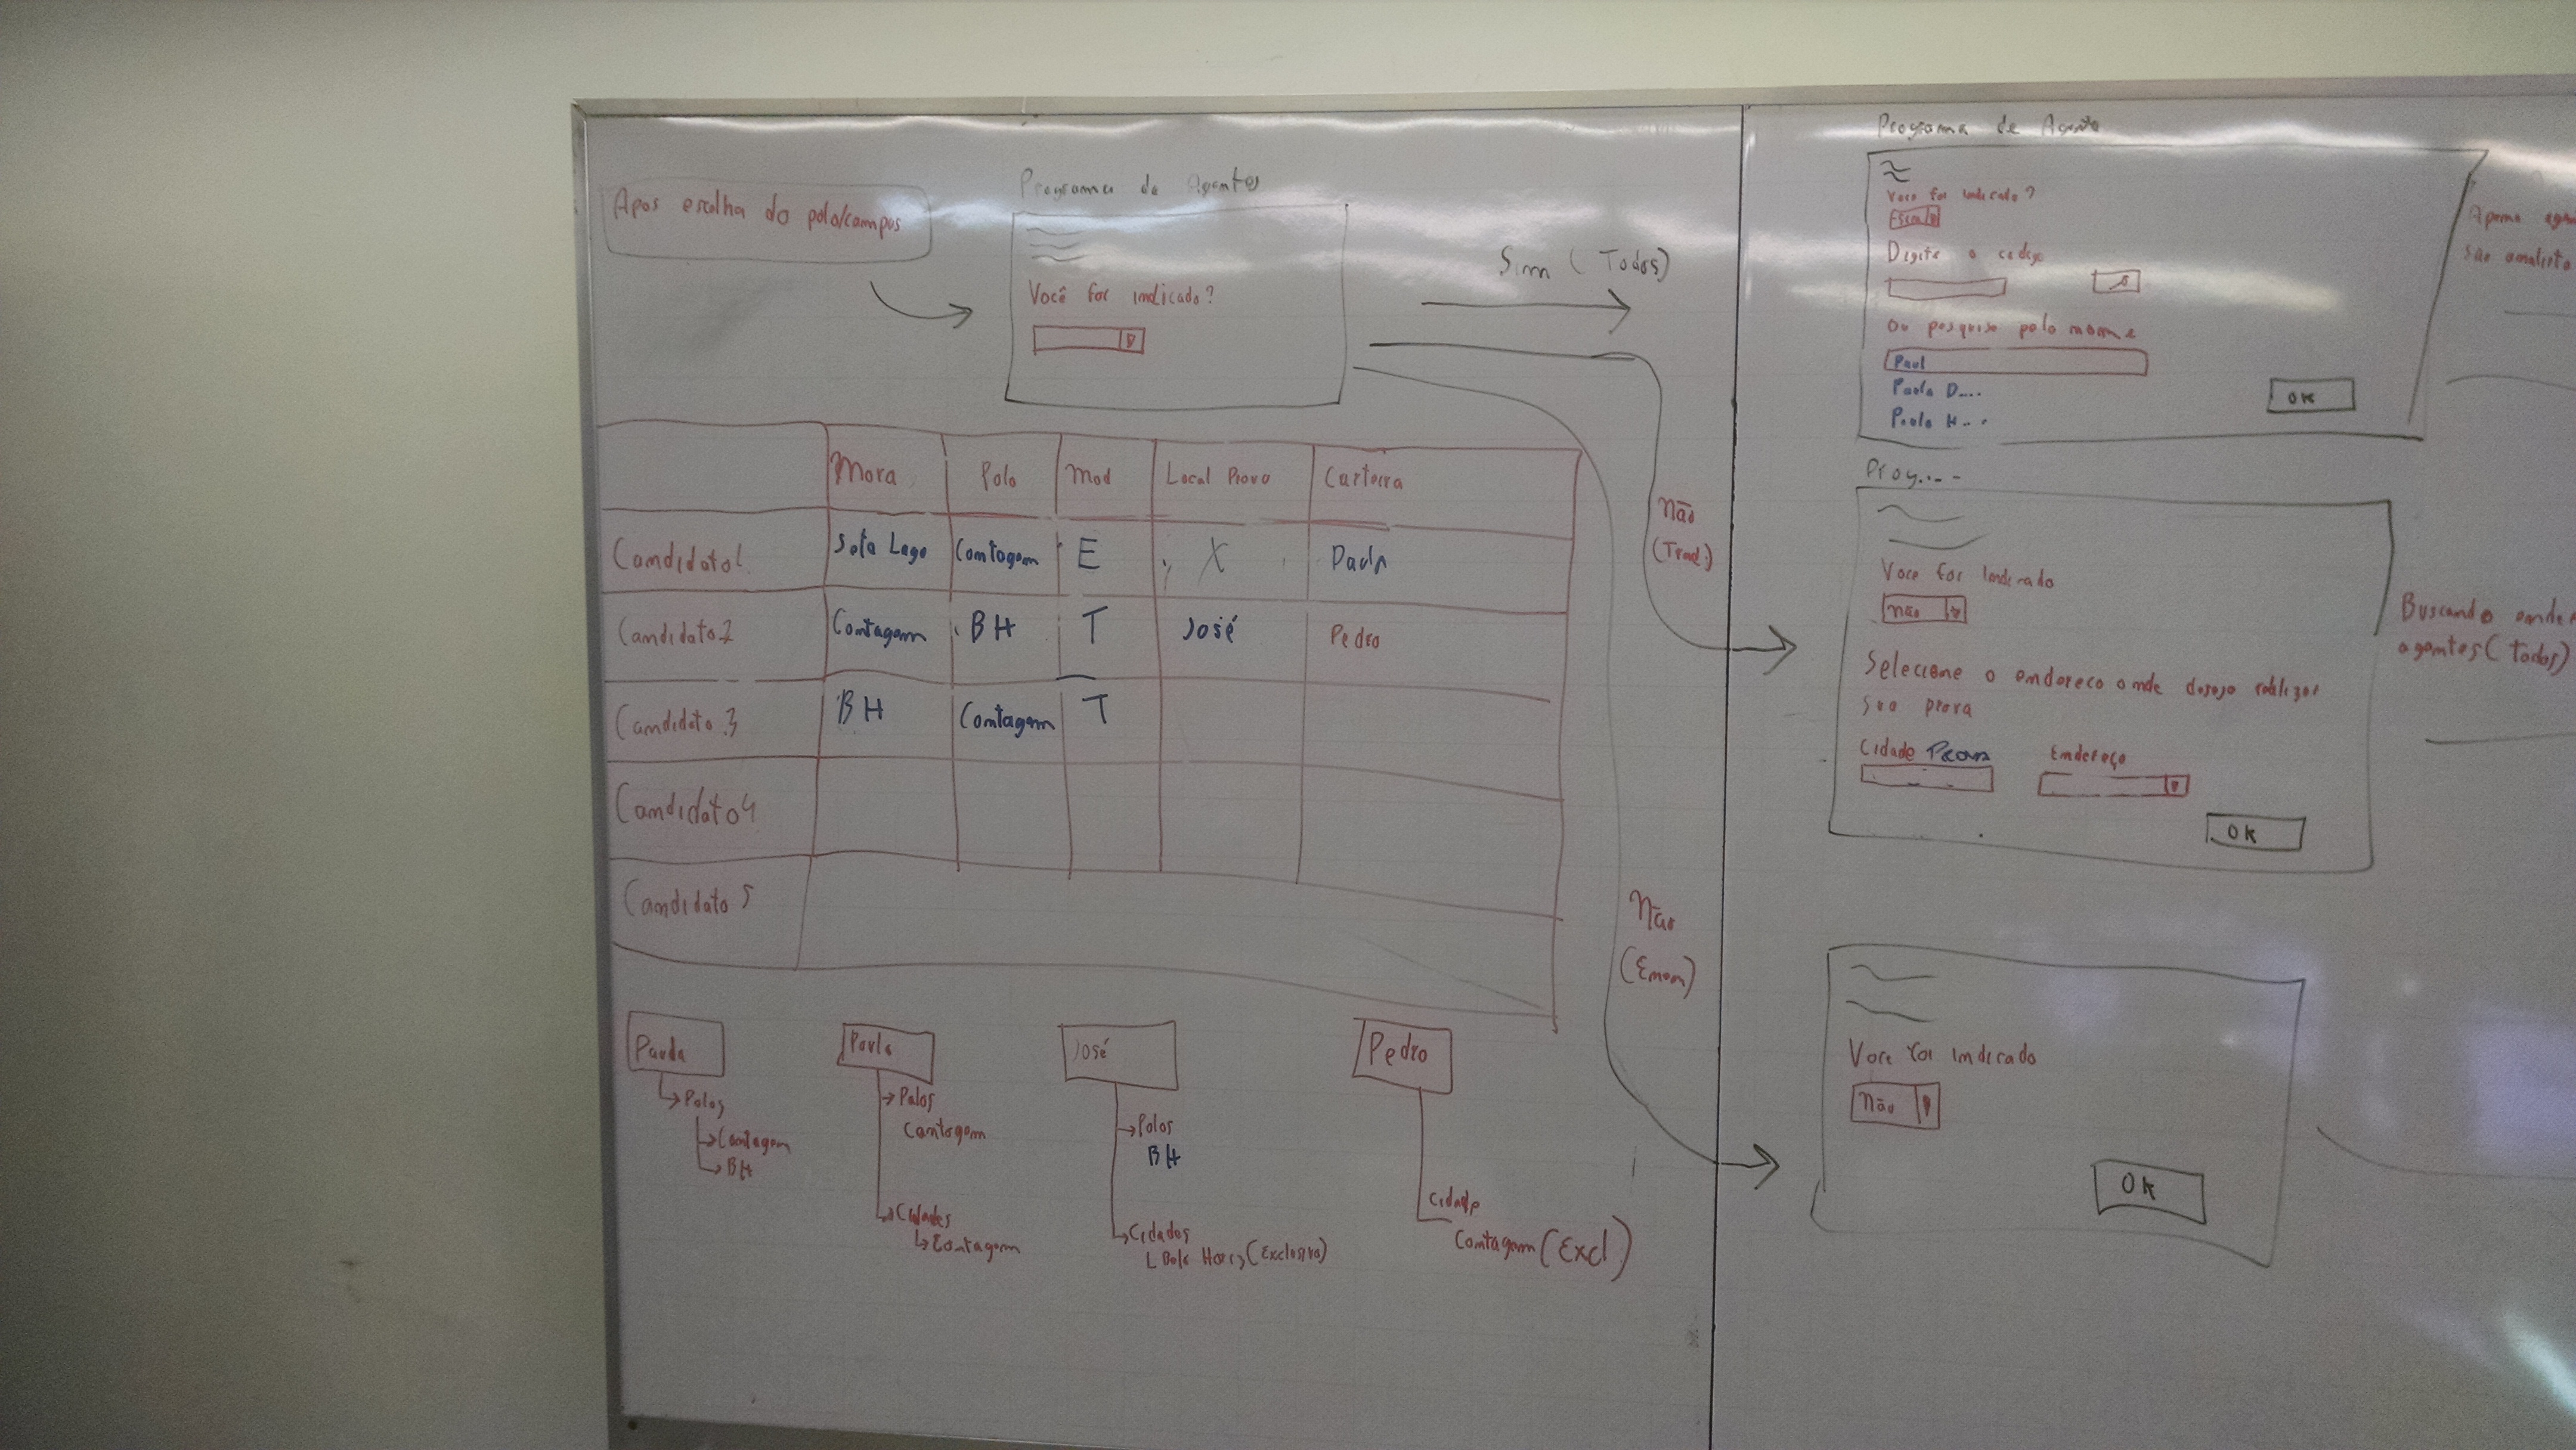 Apos escolha do polo/campus
Programa de Agentes
Você foi indicado?
Sim (Todos)
Não
(Trad.)
Não
(Enem)
Mora Polo Mod Local Prova Carteira
Candidato 1 Sete Lago Contagem E X Paula
Candidato 2 Contagem BH T José Pedro
Candidato 3 BH Contagem T
Candidato 4
Candidato 5
Polos
Contagem
BH
Paula
Polos
Contagem
Cidades
Contagem
José
Polos
BH
Cidades
(Exclusiva)
Pedro
Cidade
Contagem (Excl)
Programa de Agente
Voce foi indicado?
Digite o codigo
Ou pesquise pelo nome
Paul
Paula D....
Paula H...
OK
Prog....
Voce foi Indicado
Não
Selecione o endereco onde deseja realizar
sua prova
Cidade Prova Endereço
OK
Voce foi indicado
Não
OK
Buscando
agentes (todos)